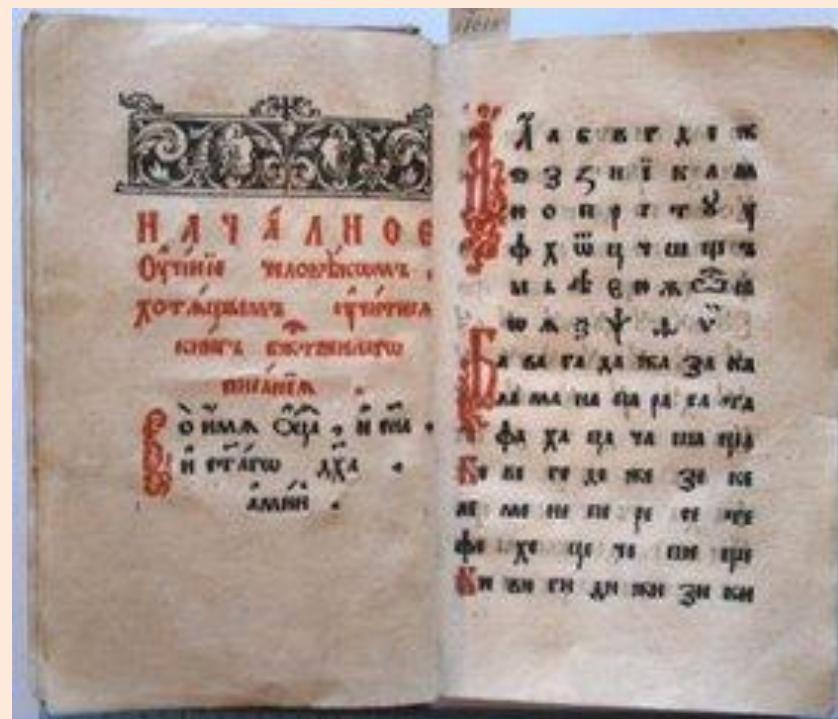 НАЧА́ЛНОЕ
Оу҆че́нїе человѣ́кѡмъ ,
хотѧ́щымъ оу҆чи́тисѧ
кни́гъ бж҃твенагѡ
писа́нїѧ .
Во и҆́мѧ Ѻ҆ц҃а , и҆ сн҃а .
и҆ ст҃а́гѡ дх҃а .
а҆ми́нь .
А а б в г д е ж
з ѕ и ї к л м
н о п р с т ꙋ
ф х ѿ ц ч ш щ ъ
ы ь ѣ є ю ѫ
ѡ ѧ ѯ ѱ ѳ ѵ
Ба ва га да жа за ка
ла ма на па ра са та
фа ха ца ча ша ща
Бе ве ге де же зе ке
ле ме не пе ре се те
фе хе це че ше ще
Би ви ги ди жи зи ки